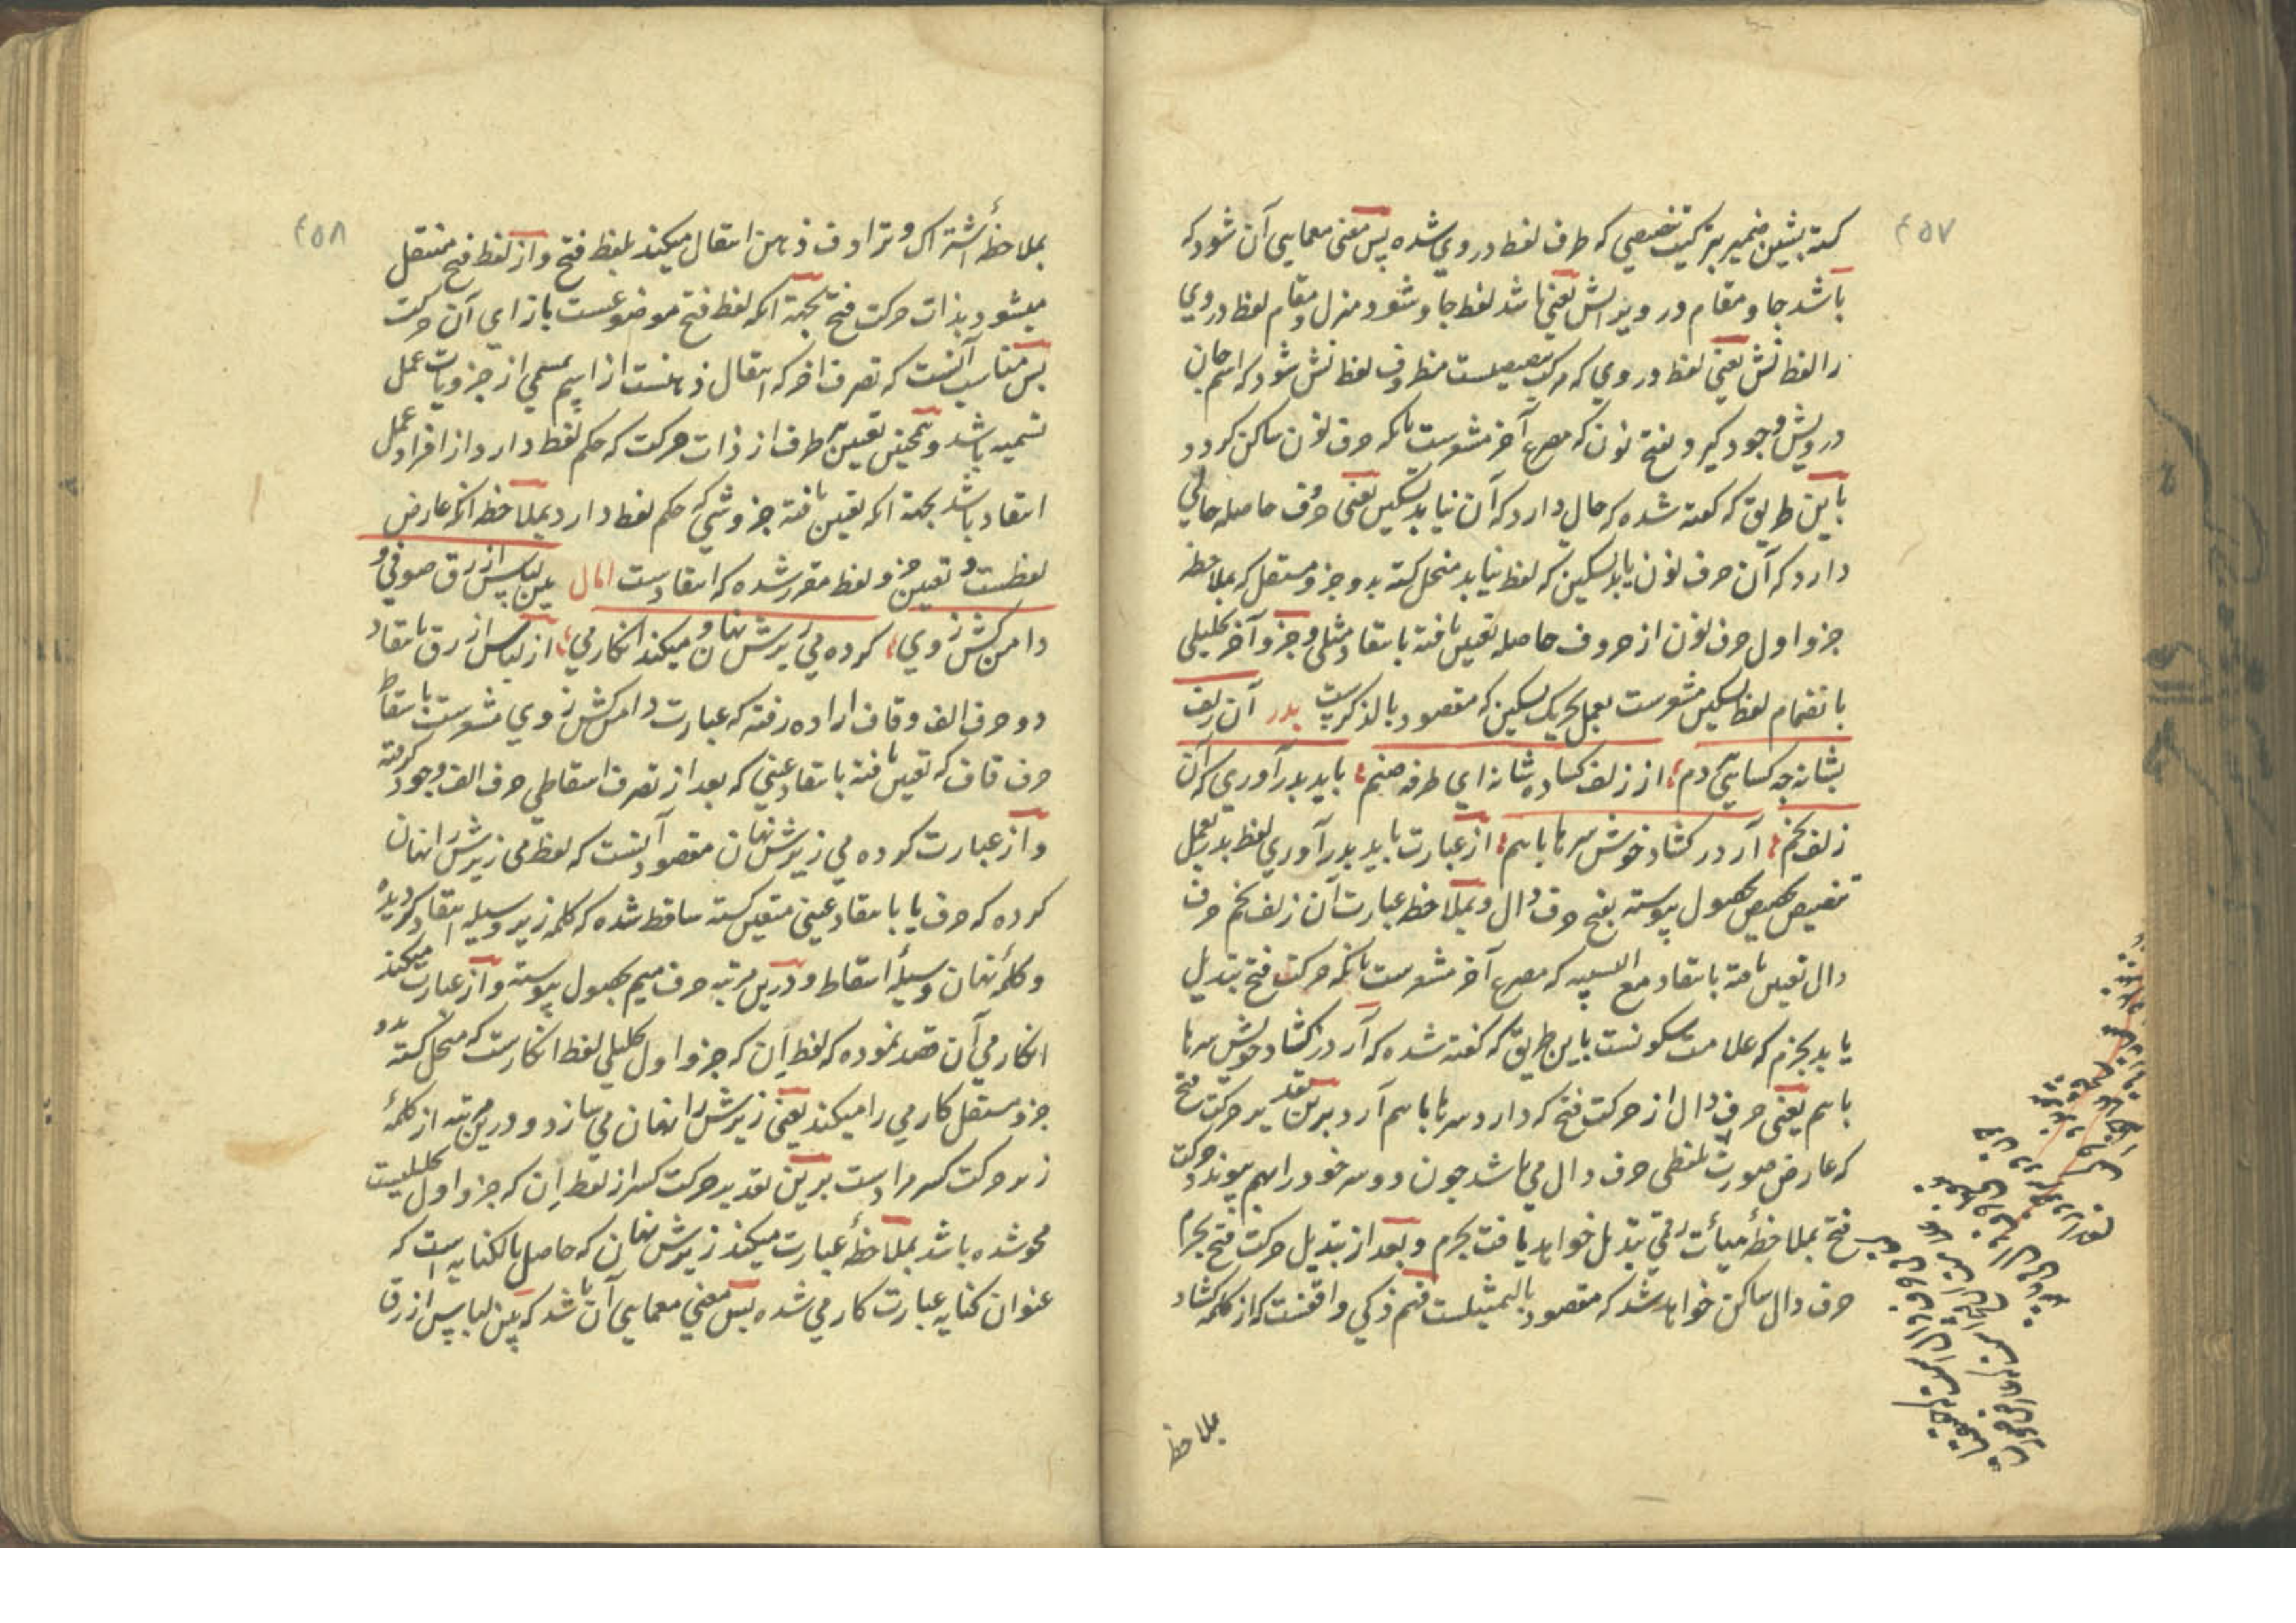 ٤٥٧
کشته بشین ضمیر بترکیب تنصیصی که طرف لفظ در وی شده پس معنی معمایی آن شود که
باشد جا و مقام درویز الش یعنی باشد لفظ جا و شود منزل و مقام لفظ در وی
را لفظ نش یعنی لفظ در وی که مرکب تنصیصیست مظروف لفظ نش شود که اسم جان
درویش وجود گیرد بفتح نون که مصرع آخر مشعرست بانکه حرف نون ساکن گردد
باین طریق که گفته شده که حال دارد که آن نیابد تسکین یعنی حروف حاصله حالی
دارد که آن حرف نون یابد تسکین که لفظ نیابد منحل گشته بدو جزو مستقل که بملاحظه
جزو اول حرف نون از حروف حاصله تعیین یافته بانتقاد مثلی و جزو آخر تحلیلی
بانضمام لفظ تسکین مشعرست بعمل تحریک تسکین که مقصود بالذکرست بدر آن زلف
بشانه چه کسایی دم از زلف کساده شانه ای طرفه صنم باید بدر آوری که آن
زلف بخم آر در کشاد خوش سرها باهم از عبارت باید بدر آوری لفظ بدر بعمل
تنصیص تخصیص بحصول پیوسته بفتح حرف دال و بملاحظه عبارت آن زلف بخم حرف
دال تعیین یافته بانتقاد مع التسمیه که مصرع آخر مشعرست بانکه حرکت فتح تبدیل
یابد بجزم که علامت سکونست باین طریق که گفته شده که آر در کشاد خوش سرها
باهم یعنی حرف دال از حرکت فتح که دارد سرها باهم آرد برین تقدیر حرکت فتح
که عارض صورت لفظی حرف دال می باشد چون دو سر خود را بهم پیوندد حرکت
فتح بملاحظهٔ هیأت رقمی تبدیل خواهد یافت بجزم و بعد از تبدیل حرکت فتح بجزم
حرف دال ساکن خواهد شد که مقصود بالتمثیلست فهم ذکی واقفست که از کلمه کشاد
بملاحظ
٤٥٨
بملاحظهٔ اشتراک و ترادف ذهن انتقال میکند بلفظ فتح و از لفظ فتح منتقل
میشود بذات حرکت فتح بجهة آنکه لفظ فتح موضوعست بازای آن حرکت
پس مناسب آنست که تصرف آخر که انتقال ذهنست از اسم بمسمی از جزویات عمل
تسمیه باشد و همچنین تعیین طرف از ذات حرکت که حکم لفظ دارد از افراد عمل
انتقاد باشد بجهة آنکه تعیین یافته جزو شئی که حکم لفظ دارد بملاحظه آنکه عارض
لفظست و تعیین جزو لفظ مقرر شده که انتقادست امال بین لباس ازرق صوفی و
دامن کش ز وی کرده می زیرش نهان و میکند انکار می از لباس ازرق بانتقاد
دو حرف الف و قاف اراده رفته که عبارت دامن کش ز وی مشعرست باسقاط
حرف قاف که تعیین یافته بانتقاد عینی که بعد از تصرف اسقاطی حرف الف وجود گرفته
و از عبارت کرده می زیرش نهان مقصود آنست که لفظ می زیرش را نهان
کرده که حرف یا بانتقاد عینی متعین گشته ساقط شده که کلمه زیر وسیله انتقاد گردیده
و کلمهٔ نهان وسیلهٔ اسقاط و درین مرتبه حرف میم بحصول پیوسته و از عبارت میکند
انکار می آن قصد نموده که لفظ اِن که جزو اول تحلیلی لفظ انکارست که منحل گشته بدو
جزو مستقل کار می را میکند یعنی زیرش را نهان می سازد و درین مرتبه از کلمهٔ
زیر حرکت کسر مرادست برین تقدیر حرکت کسر از لفظ اِن که جزو اول تحلیلیست
محو شده باشد بملاحظهٔ عبارت میکند زیرش نهان که حاصل بالکنایه است که
عنوان کنایه عبارت کار می شده پس معنی معمایی آن باشد که بین لباس ازرق